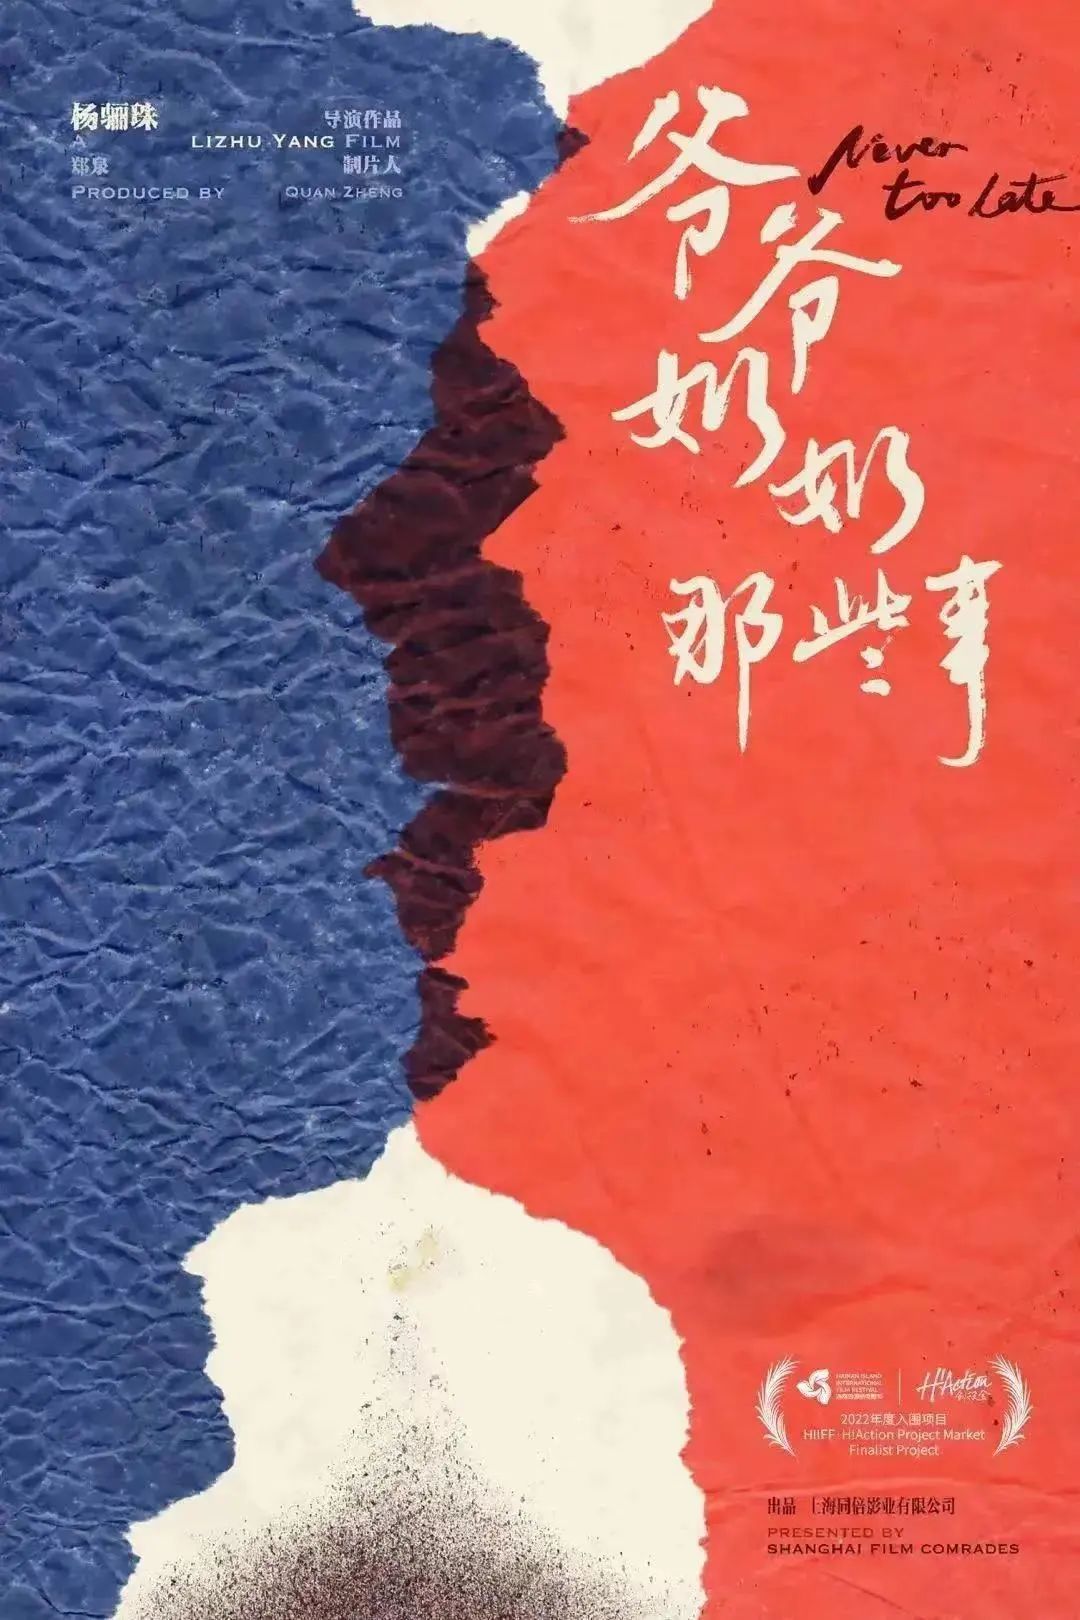 杨骊珠 导演作品
A LIZHU YANG FILM
郑泉 制片人
PRODUCED BY QUAN ZHENG
爷爷
奶奶
那些事
Never
too late
HAINAN ISLAND
INTERNATIONAL
FILM FESTIVAL
海南岛国际电影节
H!Action
创投会
2022年度入围项目
HIIFF·H!Action Project Market
Finalist Project
出品 上海同倍影业有限公司
PRESENTED BY
SHANGHAI FILM COMRADES